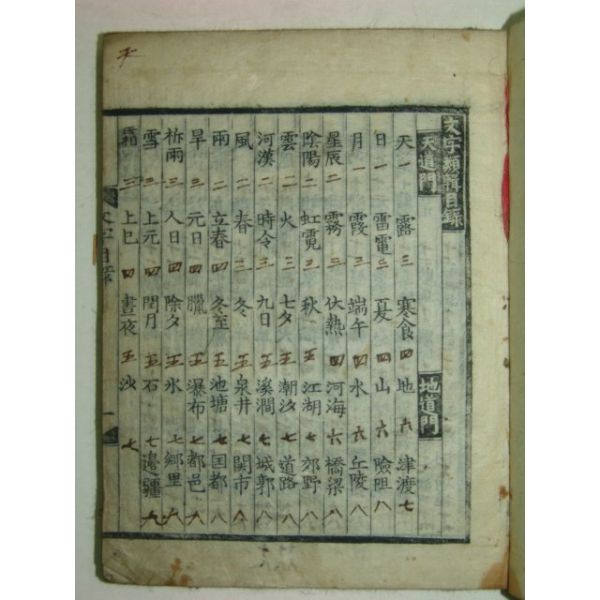 文字類輯目錄
天道門 地道門
天 一 露 三 寒食 四 地 六 津渡 七
日 一 雷電 三 夏 四 山 六 險阻 八
月 一 霞 三 端午 四 水 六 丘陵 八
星辰 二 霧 三 伏熱 四 河海 六 橋梁 八
陰陽 二 虹霓 三 秋 五 江湖 六 郊野 八
雲 二 火 三 七夕 五 潮汐 七 道路 八
河漢 二 時令 三 九日 五 溪澗 七 城郭 八
風 二 春 三 冬 五 泉井 七 關市 八
雨 二 立春 四 冬至 五 池塘 七 国都 八
旱 三 元日 四 臘 五 瀑布 七 都邑 八
祈雨 三 人日 四 除夕 五 氷 七 鄕里 八
雪 三 上元 四 閏月 五 石 七 邊疆 九
霜 三 上巳 四 晝夜 五 沙 七
文字目錄 一